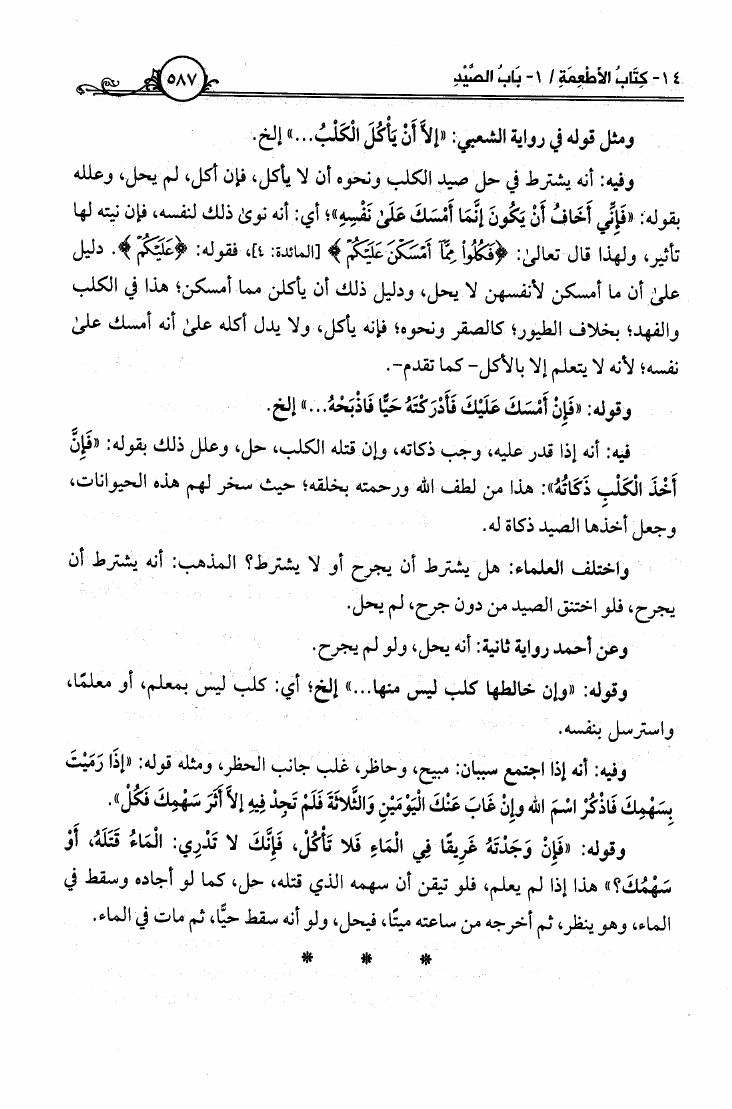 ١٤- كِتَابُ الأَطْعِمَةِ / ١- بَابُ الصَّيْدِ
٥٨٧
ومثل قوله في رواية الشعبي: «إِلاَّ أَنْ يَأْكُلَ الْكَلْبُ...» إلخ.
وفيه: أنه يشترط في حل صيد الكلب ونحوه أن لا يأكل، فإن أكل، لم يحل، وعلله
بقوله: «فَإِنِّي أَخَافُ أَنْ يَكُونَ إِنَّمَا أَمْسَكَ عَلَىٰ نَفْسِهِ»؛ أي: أنه نوىٰ ذلك لنفسه، فإن نيته لها
تأثير، ولهذا قال تعالىٰ: ﴿فَكُلُوا۟ مِمَّآ أَمْسَكْنَ عَلَيْكُمْ﴾ [المائدة: ٤]، فقوله: ﴿عَلَيْكُمْ﴾. دليل
علىٰ أن ما أمسكن لأنفسهن لا يحل، ودليل ذلك أن يأكلن مما أمسكن؛ هذا في الكلب
والفهد؛ بخلاف الطيور؛ كالصقر ونحوه؛ فإنه يأكل، ولا يدل أكله علىٰ أنه أمسك علىٰ
نفسه؛ لأنه لا يتعلم إلا بالأكل- كما تقدم-.
وقوله: «فَإِنْ أَمْسَكَ عَلَيْكَ فَأَدْرَكْتَهُ حَيًّا فَاذْبَحْهُ...» إلخ.
فيه: أنه إذا قدر عليه، وجب ذكاته، وإن قتله الكلب، حل، وعلل ذلك بقوله: «فَإِنَّ
أَخْذَ الْكَلْبِ ذَكَاتُهُ»: هذا من لطف الله ورحمته بخلقه؛ حيث سخر لهم هذه الحيوانات،
وجعل أخذها الصيد ذكاة له.
واختلف العلماء: هل يشترط أن يجرح أو لا يشترط؟ المذهب: أنه يشترط أن
يجرح، فلو اختنق الصيد من دون جرح، لم يحل.
وعن أحمد رواية ثانية: أنه يحل، ولو لم يجرح.
وقوله: «وإن خالطها كلب ليس منها...» إلخ؛ أي: كلب ليس بمعلم، أو معلمًا،
واسترسل بنفسه.
وفيه: أنه إذا اجتمع سببان: مبيح، وحاظر، غلب جانب الحظر، ومثله قوله: «إِذَا رَمَيْتَ
بِسَهْمِكَ فَاذْكُرْ اسْمَ الله وإِنْ غَابَ عَنْكَ الْيَوْمَيْنِ وَالثَّلاثَةَ فَلَمْ تَجِدْ فِيهِ إِلاَّ أَثَرَ سَهْمِكَ فَكُلْ».
وقوله: «فَإِنْ وَجَدْتَهُ غَرِيقًا فِي الْمَاءِ فَلا تَأْكُلْ، فَإِنَّكَ لا تَدْرِي: الْمَاءُ قَتَلَهُ، أَوْ
سَهْمُكَ؟» هذا إذا لم يعلم، فلو تيقن أن سهمه الذي قتله، حل، كما لو أجاده وسقط في
الماء، وهو ينظر، ثم أخرجه من ساعته ميتًا، فيحل، ولو أنه سقط حيًّا، ثم مات في الماء.
* * *